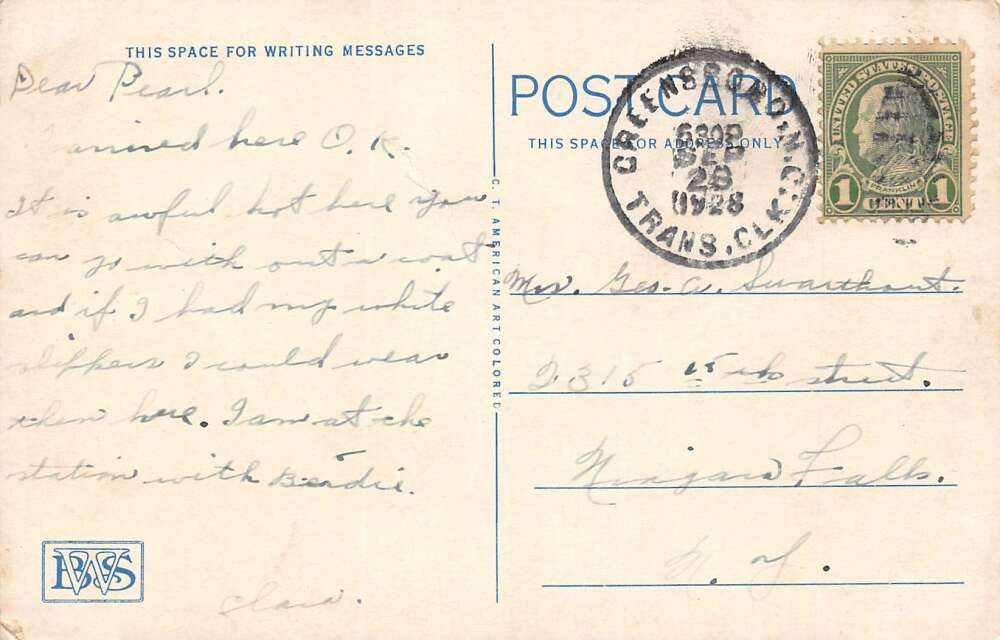 THIS SPACE FOR WRITING MESSAGES
Dear Pearl.
arrived here O.K.
It is awful hot here you
can go with out a coat
and if I had my white
slippers I could wear
them here. I am at the
station with Berdie.
Clara.
BWS
C. T. AMERICAN ART COLORED
POST CARD
THIS SPACE FOR ADDRESS ONLY
GREENSBORO, N.C.
630P
SEP
28
1928
TRANS. CLK.
UNITED STATES POSTAGE
FRANKLIN
1 CENT 1
Mrs. Geo. A. Swarthout.
2315 15th street.
Niagara Falls.
N. Y.